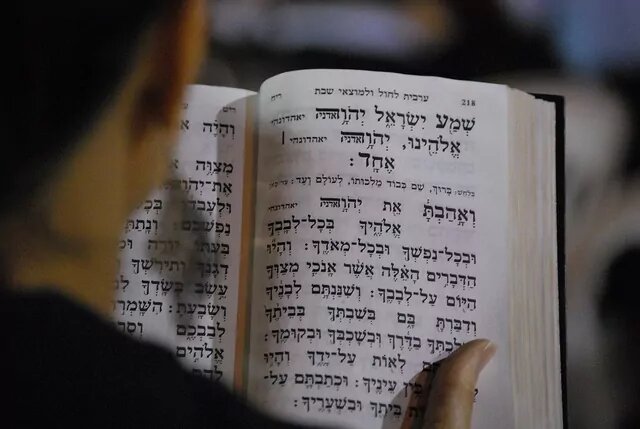 218 ערבית לחול ולמוצאי שבת ריח
שְׁמַע יִשְׂרָאֵל יְהֹוָה אדני יאהדונהי
אֱלֹהֵינוּ, יְהֹוָה אדני יאהדונהי |
אֶחָד:
בלחש: בָּרוּךְ, שֵׁם כְּבוֹד מַלְכוּתוֹ, לְעוֹלָם וָעֶד:
וְאָהַבְתָּ אֵת יְהֹוָה אדני יאהדונהי
אֱלֹהֶיךָ בְּכָל-לְבָבְךָ
וּבְכָל-נַפְשְׁךָ וּבְכָל-מְאֹדֶךָ: וְהָיוּ
הַדְּבָרִים הָאֵלֶּה אֲשֶׁר אָנֹכִי מְצַוְּךָ
הַיּוֹם עַל-לְבָבֶךָ: וְשִׁנַּנְתָּם לְבָנֶיךָ
וְדִבַּרְתָּ בָּם בְּשִׁבְתְּךָ בְּבֵיתֶךָ
בַדֶּרֶךְ וּבְשָׁכְבְּךָ וּבְקוּמֶךָ:
לְאוֹת עַל-יָדֶךָ וְהָיוּ
עֵינֶיךָ: וּכְתַבְתָּם עַל-
בֵּיתֶךָ וּבִשְׁעָרֶיךָ:
וְהָיָה
מְצַוֶּה
אֶת-
וּלְעָבְדוֹ
נַפְשְׁכֶם: וְנָתַתִּי
בְּעִתּוֹ יוֹרֶה
דְגָנֶךָ וְתִירֹשְׁךָ
עֵשֶׂב בְּשָׂדְךָ
וְשָׂבָעְתָּ: הִשָּׁמְרוּ
לְבַבְכֶם
אֱלֹהִים